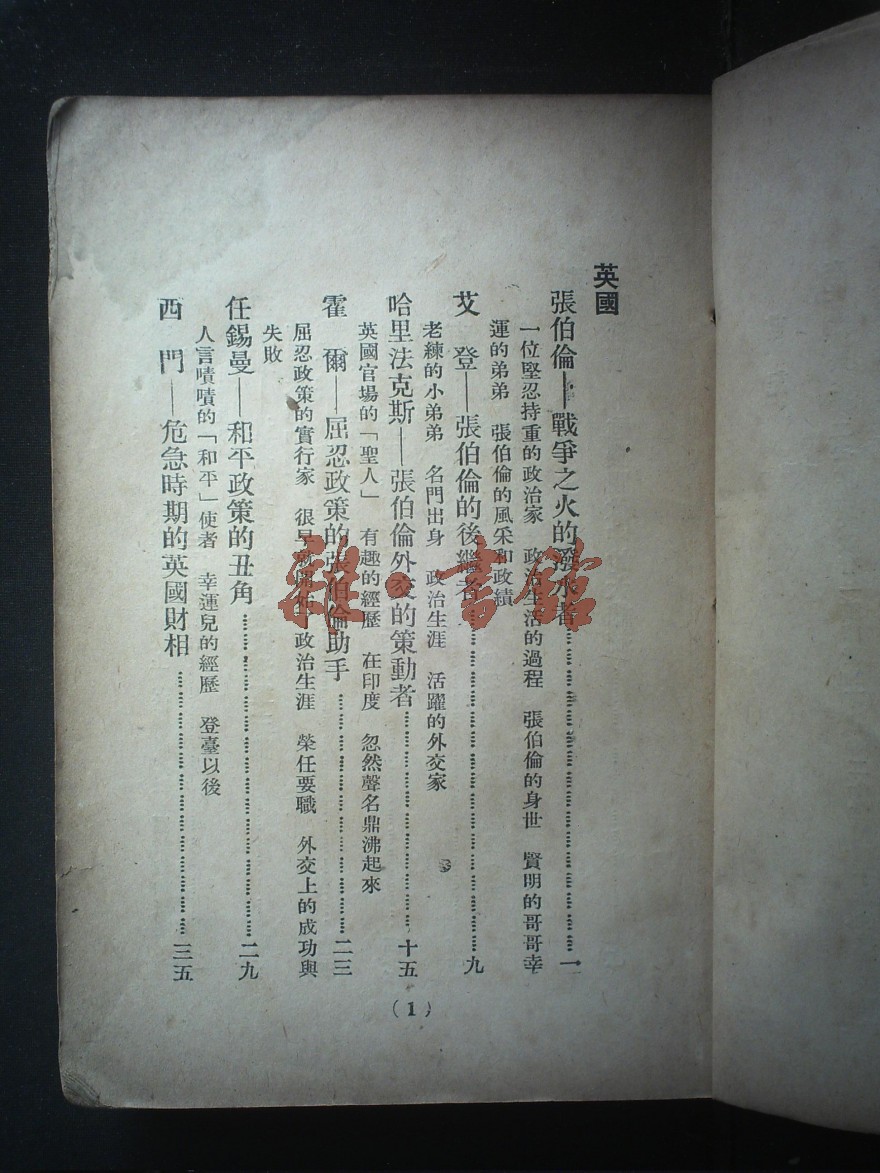 英國
張伯倫——戰爭之火的潑水者……一
一位堅忍持重的政治家　政治生活的過程　張伯倫的身世　賢明的哥哥幸
運的弟弟　張伯倫的風采和政績
艾　登——張伯倫的後繼者……九
老練的小弟弟　名門出身　政治生涯　活躍的外交家
哈里法克斯——張伯倫外交的策動者……十五
英國官場的「聖人」　有趣的經歷　在印度　忽然聲名鼎沸起來
霍　爾——屈忍政策的張伯倫助手……二三
屈忍政策的實行家　很早就開始了政治生涯　榮任要職　外交上的成功與
失敗
任錫曼——和平政策的丑角……二九
人言嘖嘖的「和平」使者　幸運兒的經歷　登臺以後
西　門——危急時期的英國財相……三五
(1)
雜·書館